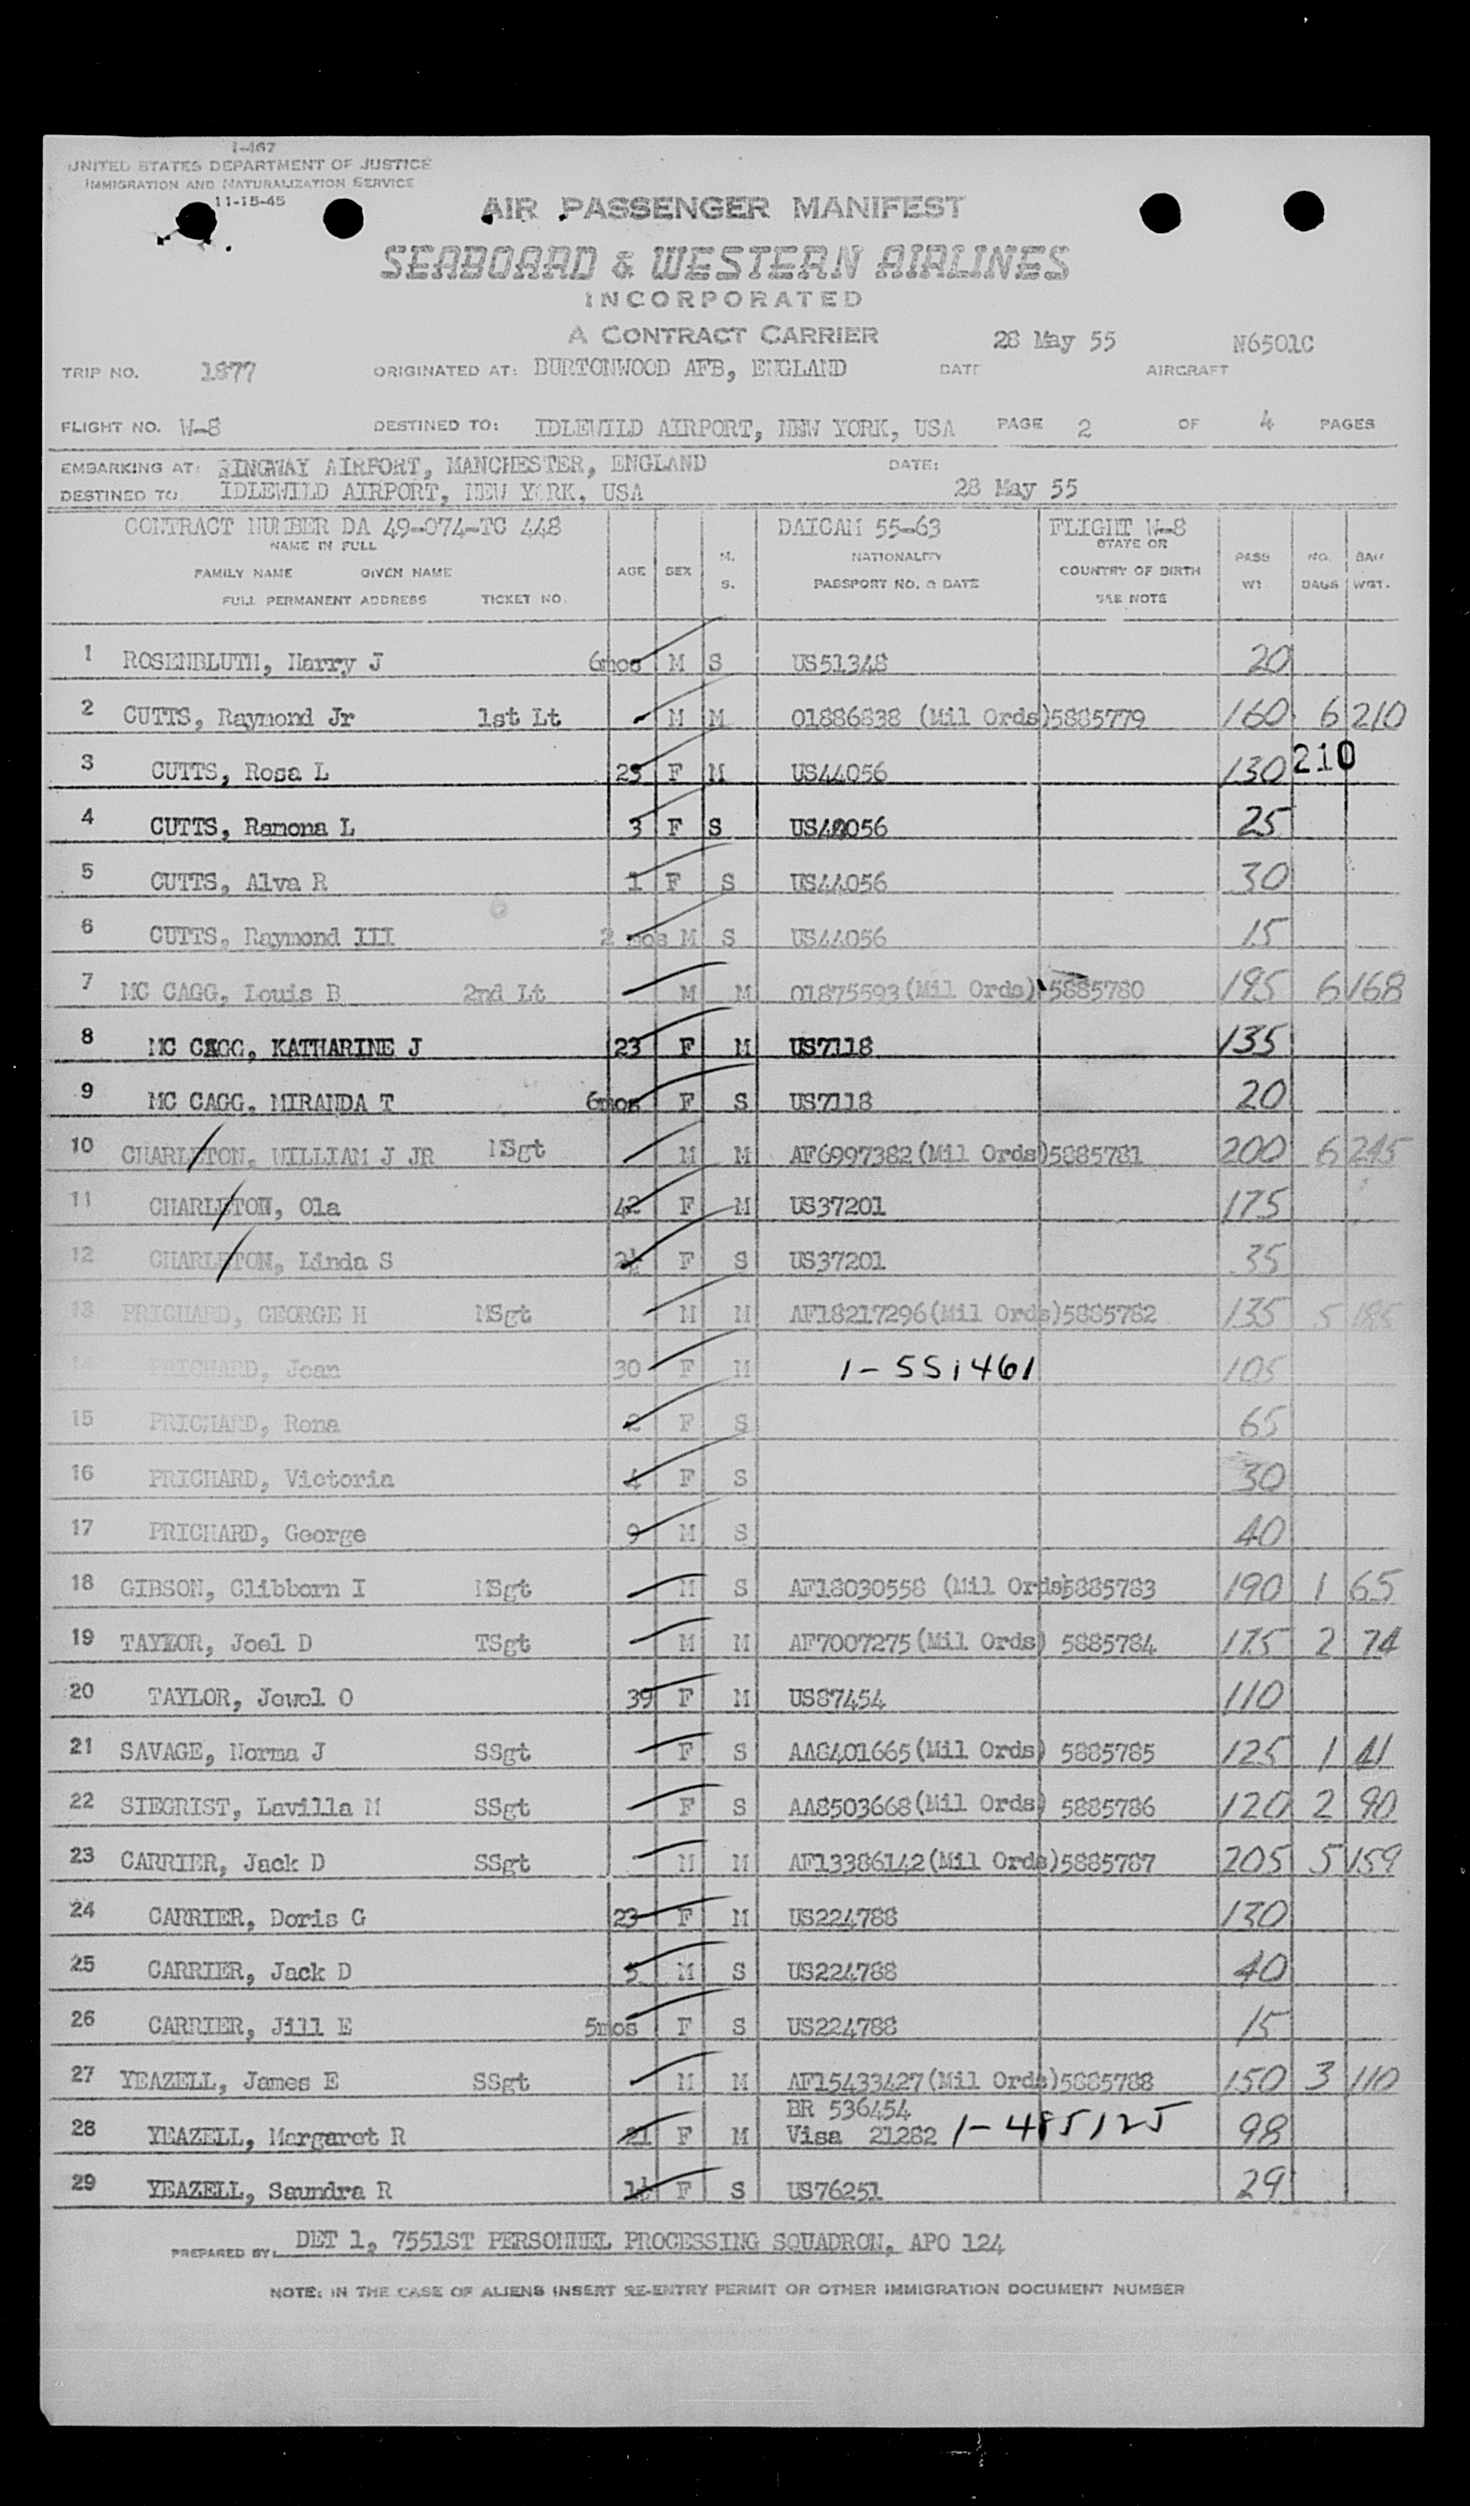 I-467
UNITED STATES DEPARTMENT OF JUSTICE
IMMIGRATION AND NATURALIZATION SERVICE
11-15-45
AIR PASSENGER MANIFEST
SEABOARD & WESTERN AIRLINES
INCORPORATED
A CONTRACT CARRIER
28 May 55 N6501C
TRIP NO. 1877 ORIGINATED AT: BURTONWOOD AFB, ENGLAND DATE AIRCRAFT
FLIGHT NO. W-8 DESTINED TO: IDLEWILD AIRPORT, NEW YORK, USA PAGE 2 OF 4 PAGES
EMBARKING AT: RINGWAY AIRPORT, MANCHESTER, ENGLAND DATE:
DESTINED TO IDLEWILD AIRPORT, NEW YORK, USA 28 May 55
CONTRACT NUMBER DA 49-074-TC 448 DAICAM 55-63 FLIGHT W-8
NAME IN FULL M. NATIONALITY STATE OR PASS NO. BAG
FAMILY NAME GIVEN NAME AGE SEX S. PASSPORT NO. & DATE COUNTRY OF BIRTH WT BAGS WGT.
FULL PERMANENT ADDRESS TICKET NO. SEE NOTE
1 ROSENBLUTH, Harry J 6mos M S US51348 20
2 CUTTS, Raymond Jr 1st Lt M M 01886838 (Mil Ords)5885779 160 6 210
3 CUTTS, Rosa L 25 F M US44056 130 210
4 CUTTS, Ramona L 3 F S US44056 25
5 CUTTS, Alva R 1 F S US44056 30
6 CUTTS, Raymond III 2 mos M S US44056 15
7 MC CAGG, Louis B 2nd Lt M M 01875593(Mil Ords) 5885780 195 6 168
8 MC CAGG, KATHARINE J 23 F M US7118 135
9 MC CAGG, MIRANDA T 6mos F S US7118 20
10 CHARLETON, WILLIAM J JR MSgt M M AF6997382(Mil Ords)5885781 200 6 245
11 CHARLETON, Ola 42 F M US37201 175
12 CHARLETON, Linda S 2½ F S US37201 35
13 PRICHARD, GEORGE H MSgt M M AF18217296(Mil Ords)5885782 135 5 185
14 PRICHARD, Joan 30 F M 1-551461 105
15 PRICHARD, Rona 2 F S 65
16 PRICHARD, Victoria 4 F S 30
17 PRICHARD, George 9 M S 40
18 GIBSON, Clibborn I MSgt M S AF18030558 (Mil Ords)5885783 190 1 65
19 TAYLOR, Joel D TSgt M M AF7007275(Mil Ords) 5885784 175 2 74
20 TAYLOR, Jewel O 39 F M US87454 110
21 SAVAGE, Norma J SSgt F S AA8401665(Mil Ords) 5885785 125 1 41
22 SIEGRIST, Lavilla M SSgt F S AA8503668(Mil Ords) 5885786 120 2 90
23 CARRIER, Jack D SSgt M M AF13386142(Mil Ords)5885787 205 5 159
24 CARRIER, Doris G 23 F M US224788 130
25 CARRIER, Jack D 5 M S US224788 40
26 CARRIER, Jill E 5mos F S US224788 15
27 YEAZELL, James E SSgt M M AF15433427(Mil Ords)5885788 150 3 110
BR 536454
28 YEAZELL, Margaret R 21 F M Visa 21282 1-485125 98
29 YEAZELL, Saundra R 1½ F S US76251 29
PREPARED BY: DET 1, 7551ST PERSONNEL PROCESSING SQUADRON, APO 124
NOTE: IN THE CASE OF ALIENS INSERT RE-ENTRY PERMIT OR OTHER IMMIGRATION DOCUMENT NUMBER